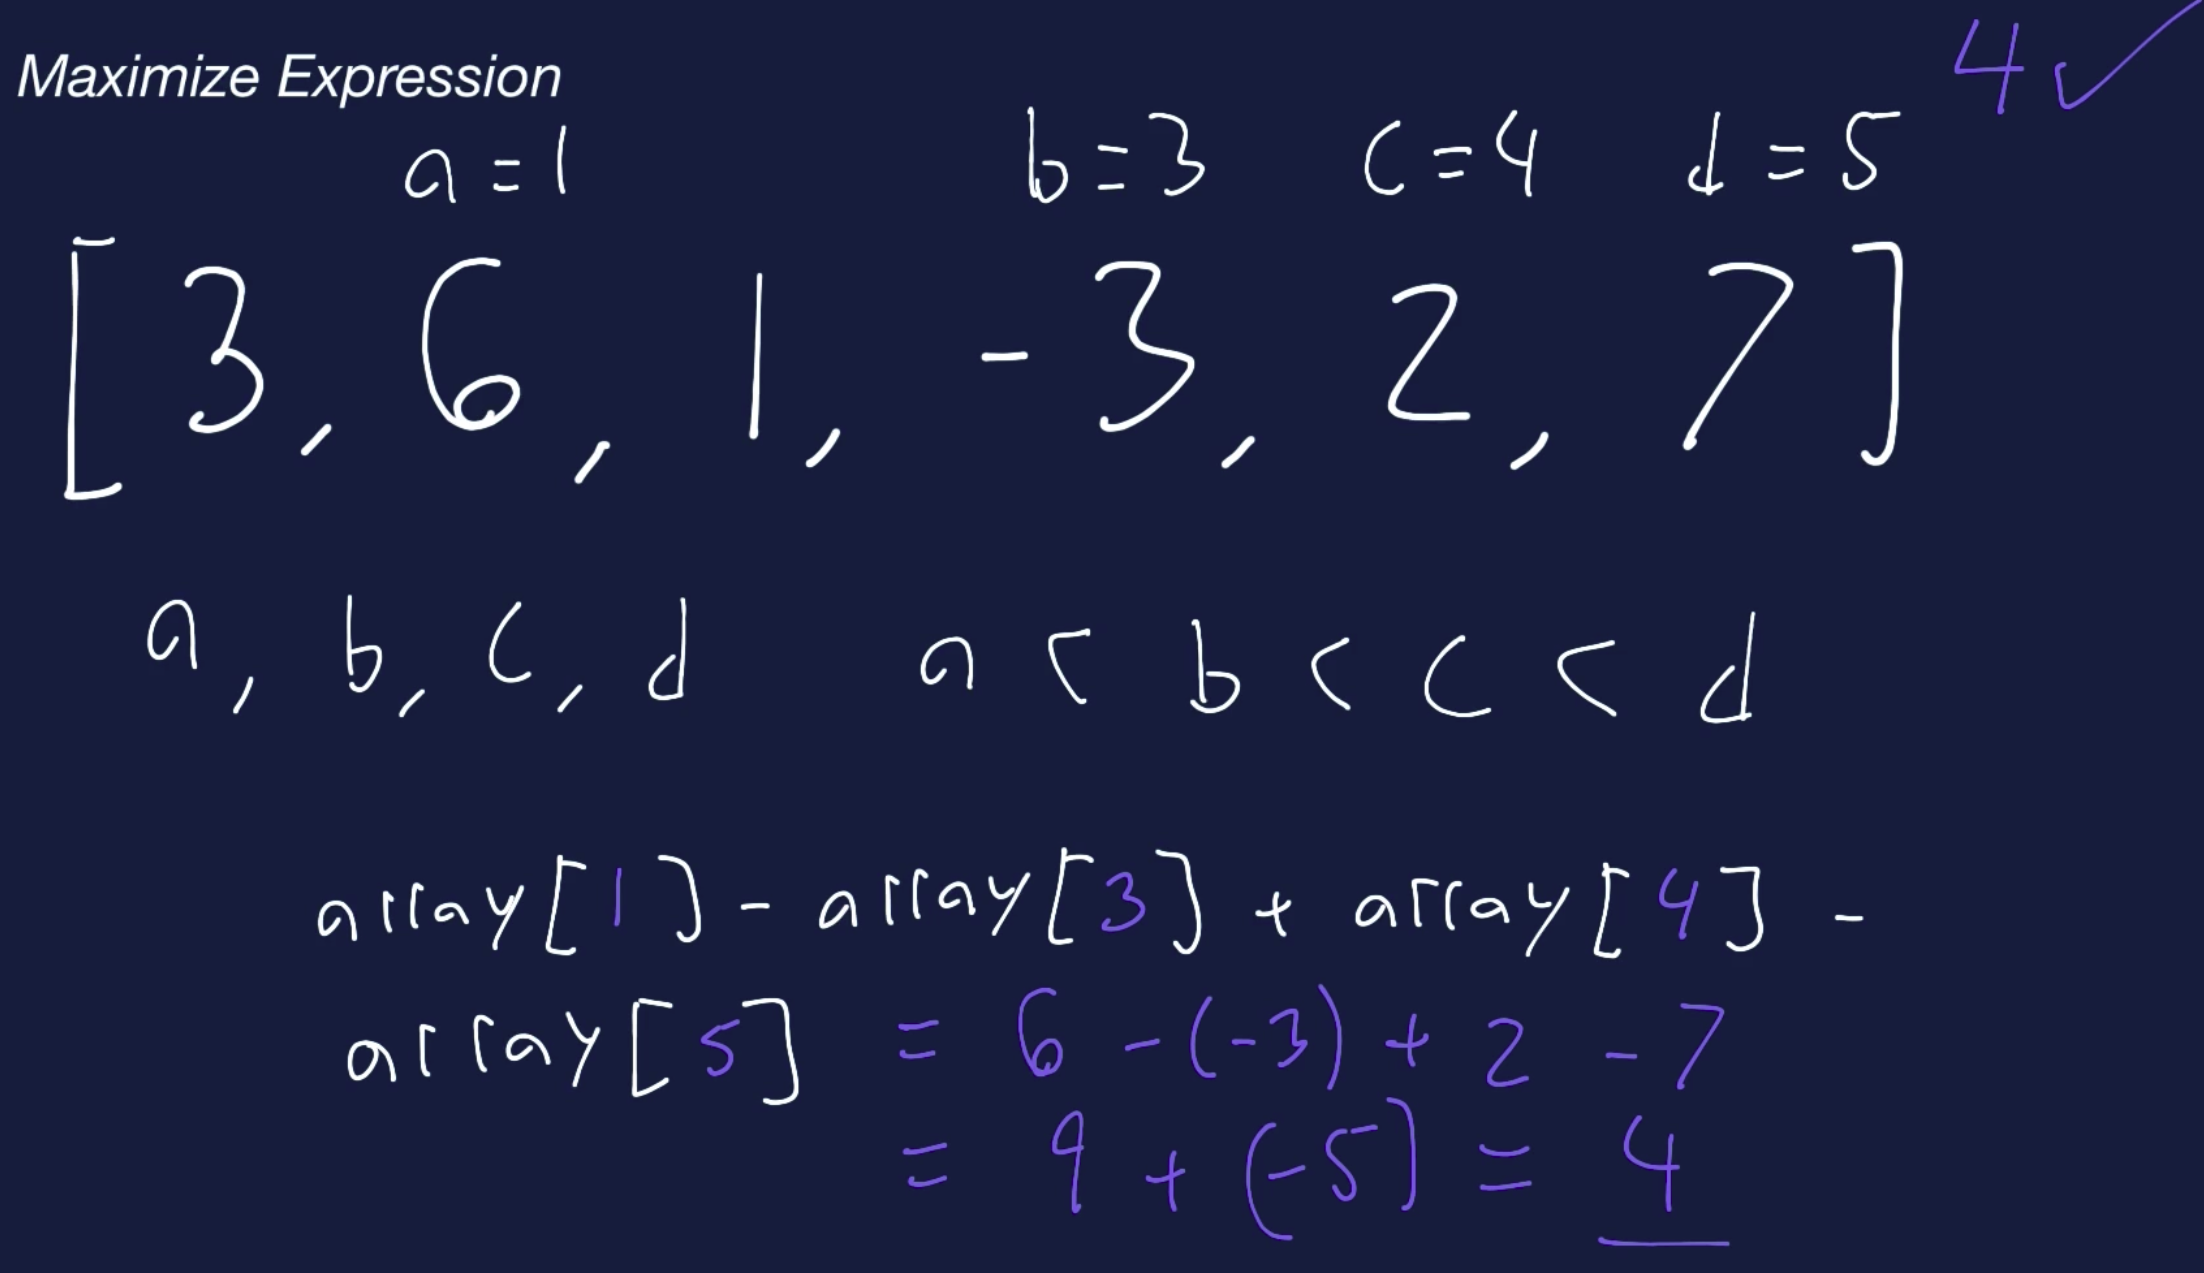 Maximize Expression
4 ✓
a = 1 b = 3 c = 4 d = 5
[ 3, 6, 1, -3, 2, 7 ]
a, b, c, d a < b < c < d
array[1] - array[3] + array[4] -
array[5] = 6 - (-3) + 2 - 7
= 9 + (-5) = 4